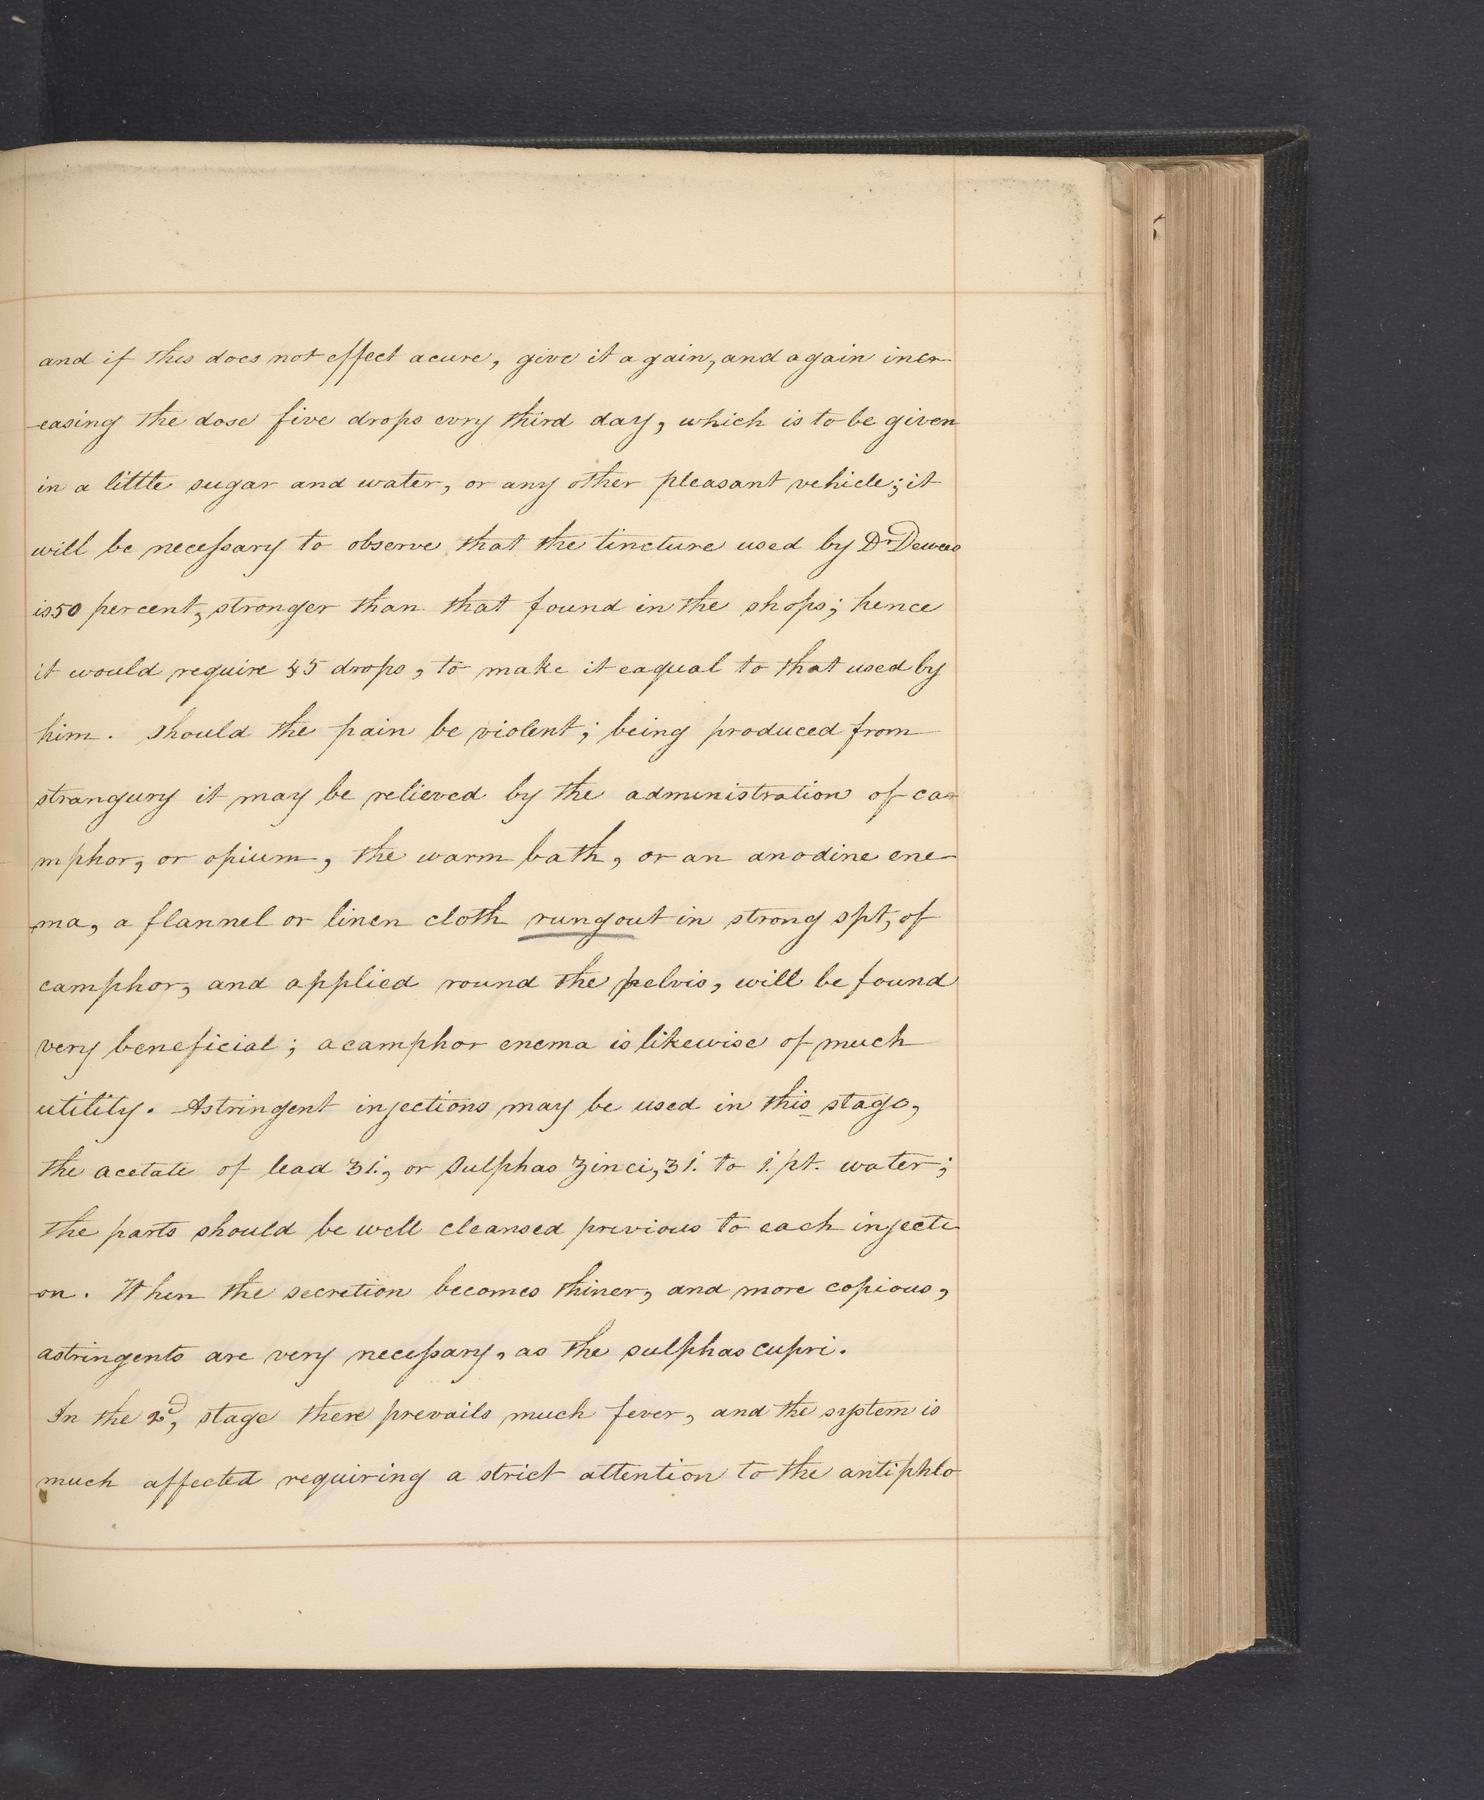 and if this does not effect a cure, give it again, and again incr
-easing the dose five drops evry third day, which is to be given
in a little sugar and water, or any other pleasant vehicle; it
will be necessary to observe that the tincture used by Dr Dewees
is 50 percent, stronger than that found in the shops; hence
it would require 45 drops, to make it eaqual to that used by
him. Should the pain be violent; being produced from
strangury it may be relieved by the administration of ca-
mphor, or opium, the warm bath, or an anodine ene-
ma, a flannel or linen cloth rung out in strong spt, of
camphor, and applied round the pelvis, will be found
very beneficial; a camphor enema is likewise of much
utility. Astringent injections may be used in this stage,
the acetate of lead ʒi., or Sulphas Zinci, ʒi. to i. pt. water;
the parts should be well cleansed previous to each injecti-
-on. When the secretion becomes thiner, and more copious,
astringents are very necessary, as the sulphas cupri.
In the 2d, stage there prevails much fever, and the system is
much affected requiring a strict attention to the antiphlo